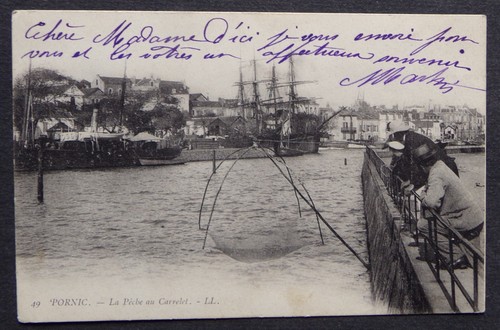 Chère Madame d'ici je vous envoie pour
vous et les vôtres un affectueux souvenir
M Martin
49 PORNIC. — La Pêche au Carrelet. - LL.